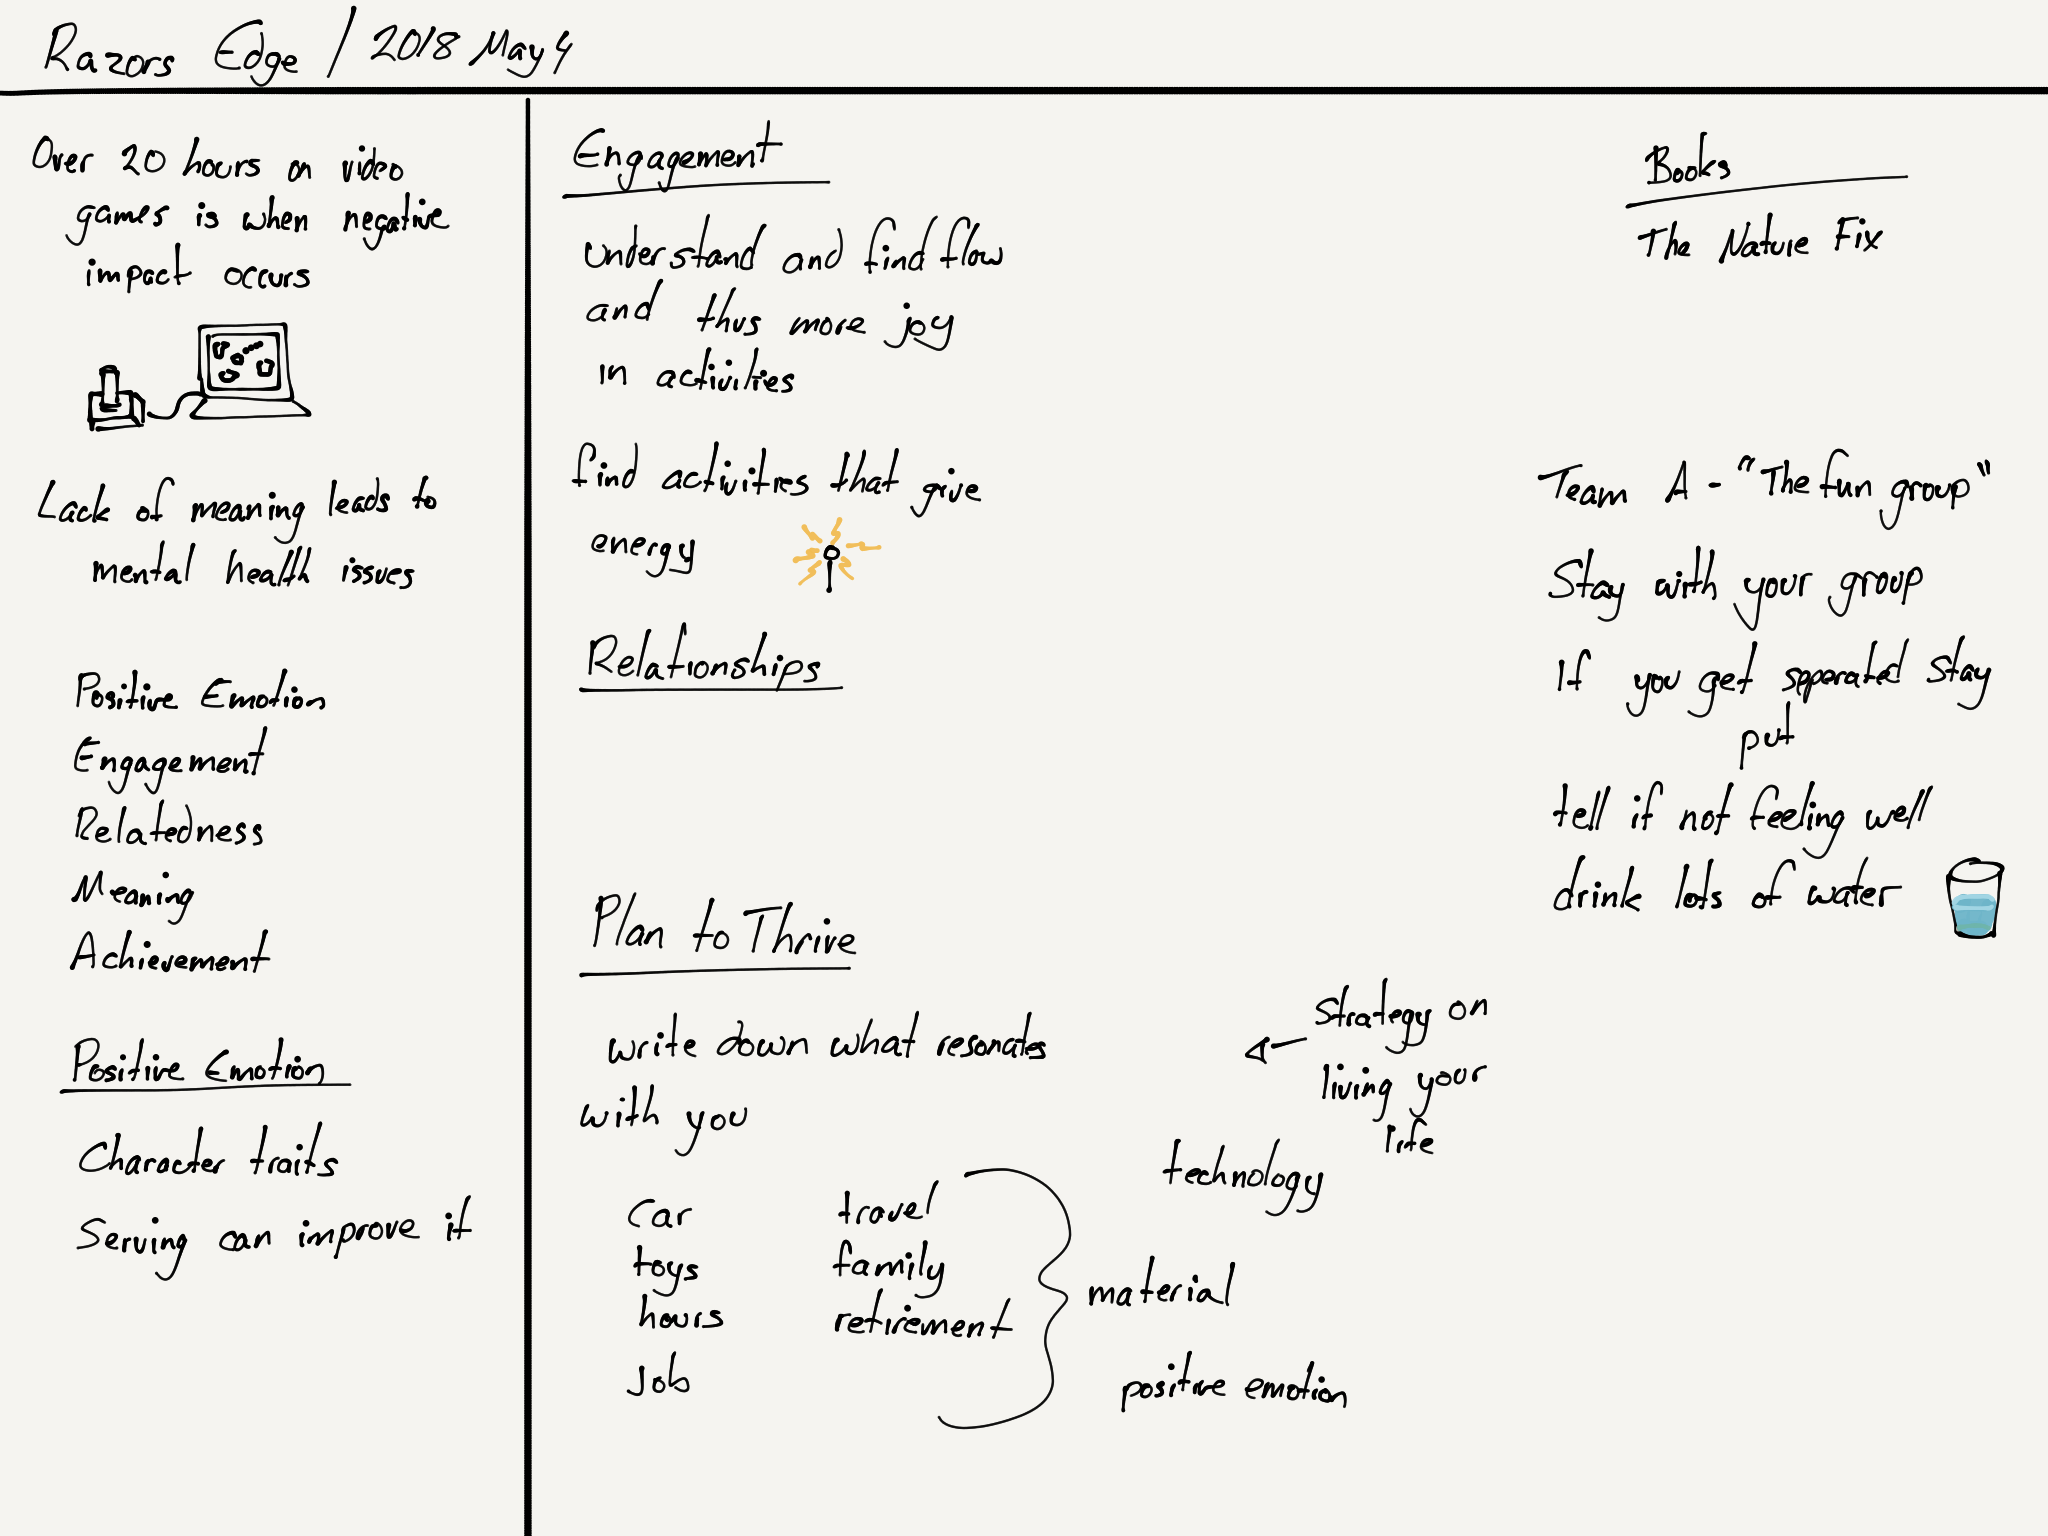 Razors Edge / 2018 May 4
Over 20 hours on video
games is when negative
impact occurs
Lack of meaning leads to
mental health issues
Positive Emotion
Engagement
Relatedness
Meaning
Achievement
Positive Emotion
Character traits
Serving can improve it
Engagement
understand and find flow
and thus more joy
in activities
find activities that give
energy
Relationships
Plan to Thrive
write down what resonates
with you
strategy on
living your
life
technology
car
toys
hours
Job
travel
family
retirement
material
positive emotion
Books
The Nature Fix
Team A - "The fun group"
Stay with your group
If you get seperated stay
put
tell if not feeling well
drink lots of water